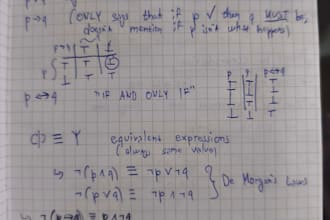 p→q
p→q (ONLY says that if p ✓ then q MUST be,
doesn't mention if p isn't what happens)
p→q T ⊥
p T T ⊥
⊥ T T
p q p↔q
p↔q "IF AND ONLY IF"
≡ equivalent expressions
(always same value)
↳ ¬(p∧q) ≡ ¬p∨¬q
¬(p∨q) ≡ ¬p∧¬q
De Morgan's Laws